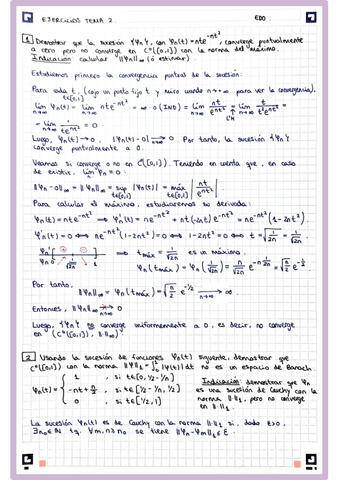 EJERCICIOS TEMA 2. EDO
1 Demostrar que la sucesión {φn}, con φn(t)=nte^{-nt²}, converge puntualmente
a cero pero no converge en C⁰([0,1]) con la norma del máximo.
Indicación: calcular ||φn||∞ (o estimar).
Estudiemos primero la convergencia puntual de la sucesión:
Para cada t, (cojo un punto fijo t y miro cuando n→∞ para ver la convergencia).
t∈[0,1]
lím φn(t) = lím nte^{-nt²} = ∞·0 (IND) = lím nt/e^{nt²} = lím t/t²e^{nt²} =
= lím 1/te^{nt²} = 0.
Luego, φn(t) → 0, |φn(t)-0| → 0. Por tanto, la sucesión {φn}
converge puntualmente a 0.
Veamos si converge o no en C⁰([0,1]). Teniendo en cuenta que, en caso
de existir, lím φn = 0.
||φn-0||∞ = ||φn||∞ = sup |φn(t)| = máx |nt/e^{nt²}|
Para calcular el máximo, estudiaremos su derivada:
φn(t) = nte^{-nt²} ⟹ φn'(t) = ne^{-nt²} + nt(-2nt)e^{-nt²} = ne^{-nt²}(1-2nt²)
φn'(t) = 0 ⟺ ne^{-nt²}(1-2nt²) = 0 ⟺ 1-2nt² = 0 ⟺ t = √(1/2n) = 1/√2n
⟹ tmáx = 1/√2n es un máximo.
φn(tmáx) = φn(1/√2n) = √(n/2) e^{-n·1/2n} = √(n/2) e^{-1/2}
Por tanto,
||φn||∞ = φn(tmáx) = √(n/2) e^{-1/2} → ∞.
Entonces, ||φn||∞ ↛ 0
Luego, {φn} no converge uniformemente a 0, es decir, no converge
en (C⁰([0,1]), ||·||∞)
2 Usando la sucesión de funciones φn(t) siguiente, demostrar que
C⁰([0,1]) con la norma ||φ||₁ = ∫₀¹ |φ(t)| dt no es un espacio de Banach.
φn(t) = { 1, si t∈[0, 1/2-1/n]
-nt + n/2, si t∈[1/2-1/n, 1/2]
0, si t∈[1/2, 1]
Indicación: demostrar que φn
es una sucesión de Cauchy con la
norma ||·||₁, pero no converge
en ||·||₁.
La sucesión φn(t) es de Cauchy con la norma ||·||₁ si, dado ε>0,
∃n₀∈ℕ tq. ∀m,n≥n₀ se tiene ||φn-φm||₁ ≤ ε.